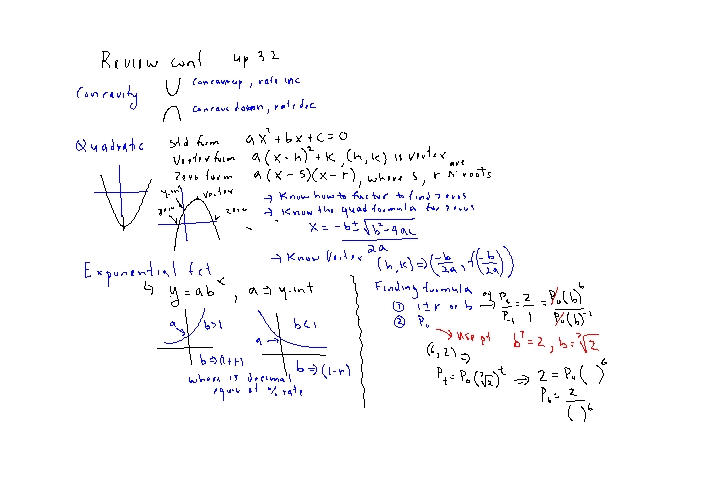 Review cont up 3 2
Concavity
concave up, rate inc
concave down, rate dec
Quadratic
std form ax²+bx+c=0
Vertex form a(x-h)²+k, (h,k) is vertex
zero form a(x-s)(x-r), where s, r are roots
y-int
vertex
zero
zero
→ Know how to factor to find zeros
→ Know the quad formula for zeros
x = -b±√b²-4ac / 2a
→ Know Vertex (h,k) ⇒ (-b/2a, f(-b/2a))
Exponential fct
↳ y=abˣ, a ⇒ y-int
a→ b>1
b ⇒ (1+r)
a→ b<1
b ⇒ (1-r)
where is decimal
equiv of % rate
Finding formula
① 1±r or b → P₆/P₋₁ = 2/1 = P₀(b)⁶/P₀(b)⁻¹
② P₀
→ use pt b⁷=2, b=⁷√2
(6,2) ⇒
Pₜ=P₀(⁷√2)ᵗ ⇒ 2=P₀( )⁶
P₀=2/( )⁶